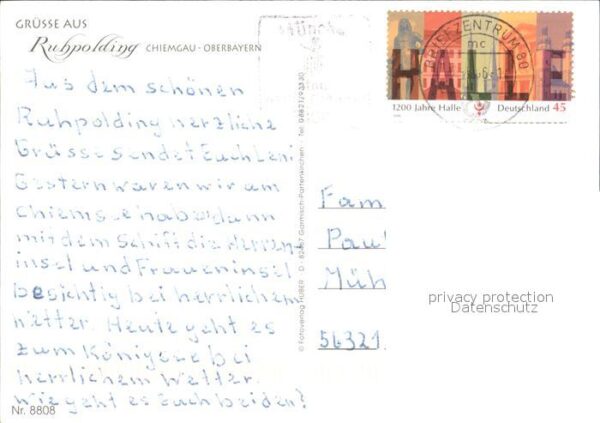 GRÜSSE AUS
Ruhpolding CHIEMGAU - OBERBAYERN
Aus dem schönen
Ruhpolding herzliche
Grüsse sendet Euch Leni
Gestern waren wir am
Chiemsee haben dann
mit dem Schiff die Herren-
insel und Fraueninsel
besichtig bei herrlichem
Wetter. Heute geht es
zum Königsee bei
herrlichem Wetter.
Wie geht es Euch beiden?
Nr. 8808
© Fotoverlag HUBER · D - 82467 Garmisch-Partenkirchen · Tel. 08821/
München
BRIEFZENTRUM 80
mc
HALLE
1200 Jahre Halle Deutschland 45
Fam
Pau
Müh
56321
privacy protection
Datenschutz